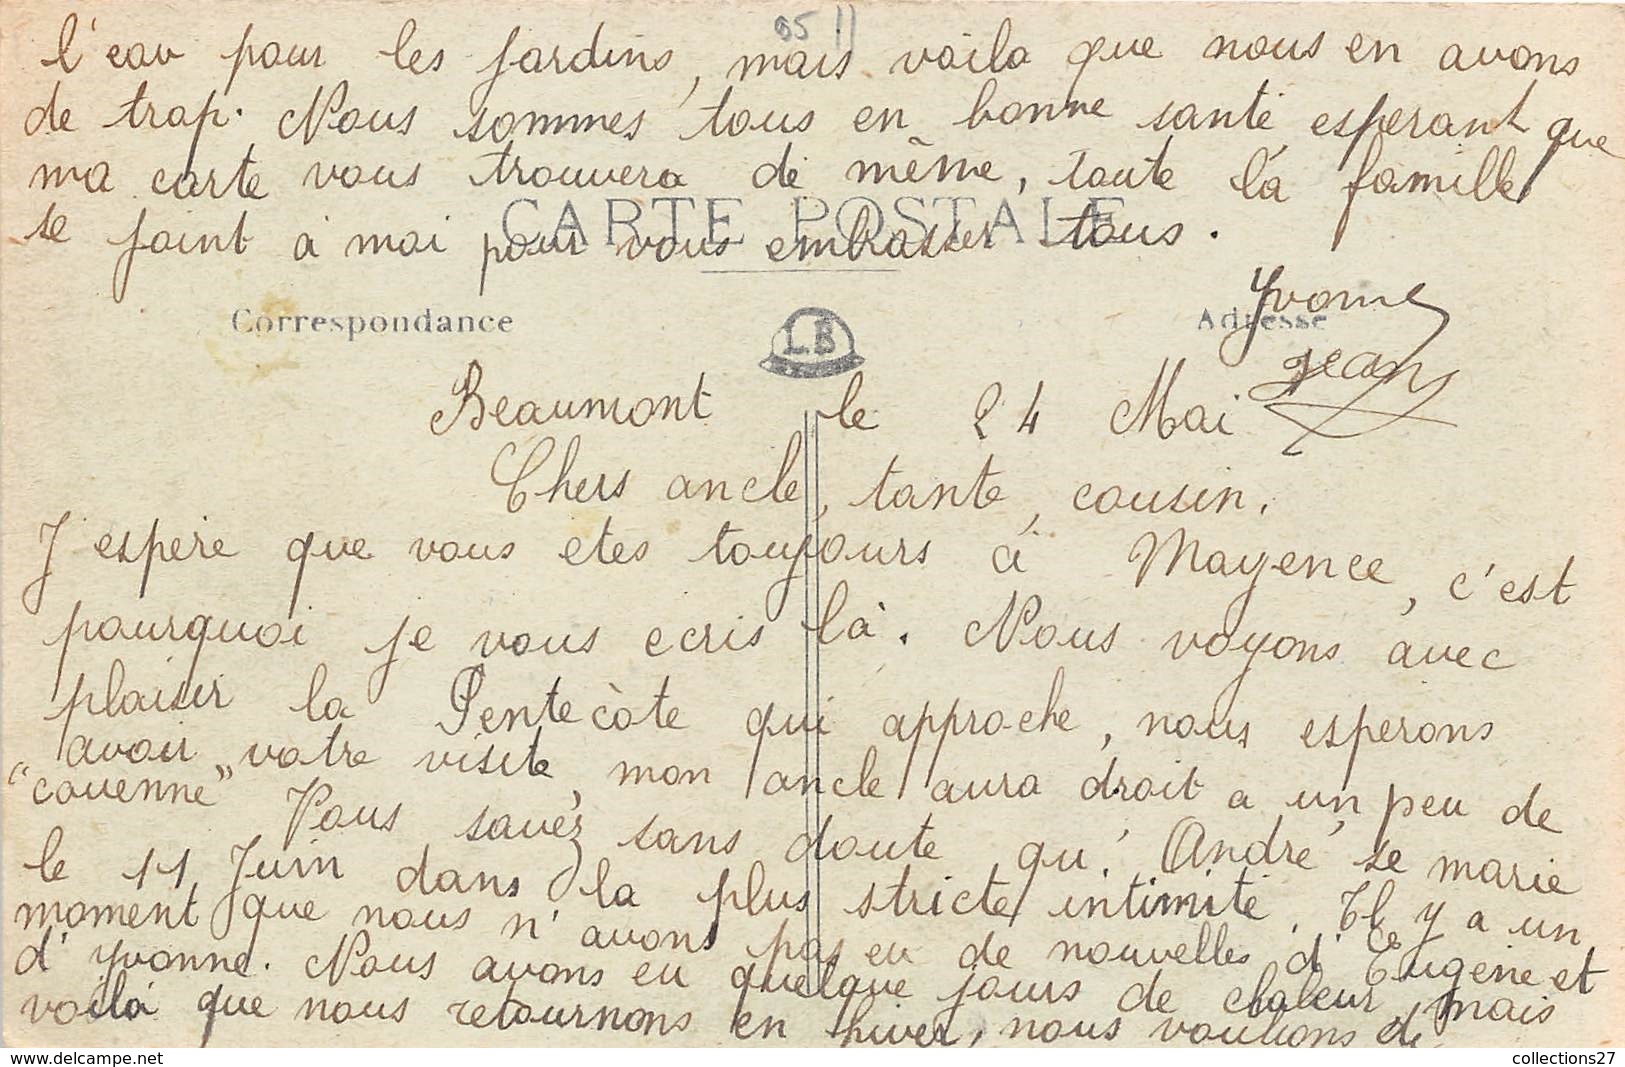 05 11
l'eau pour les jardins, mais voila que nous en avons
de trop. Nous sommes tous en bonne santé esperant que
ma carte vous trouvera de même, toute la famille
se joint à moi pour vous embrasser tous.
CARTE POSTALE
Yvonne
Correspondance
LB
Adresse
Jean
Beaumont le 24 Mai
Chers oncle, tante, cousin.
J'espère que vous etes toujours à Mayence, c'est
pourquoi je vous ecris là. Nous voyons avec
plaisir la Pentecòte qui approche, nous esperons
avoir votre visite, mon oncle aura droit a un peu de
"couenne" Vous savez sans doute qu' André se marie
le 11 Juin dans la plus stricte intimité. Il y a un
moment que nous n'avons pas eu de nouvelles d' Eugène et
d' Yvonne. Nous avons eu quelque jours de chaleur, mais
voilà que nous retournons en hiver, nous voulions de
www.delcampe.net
collections27